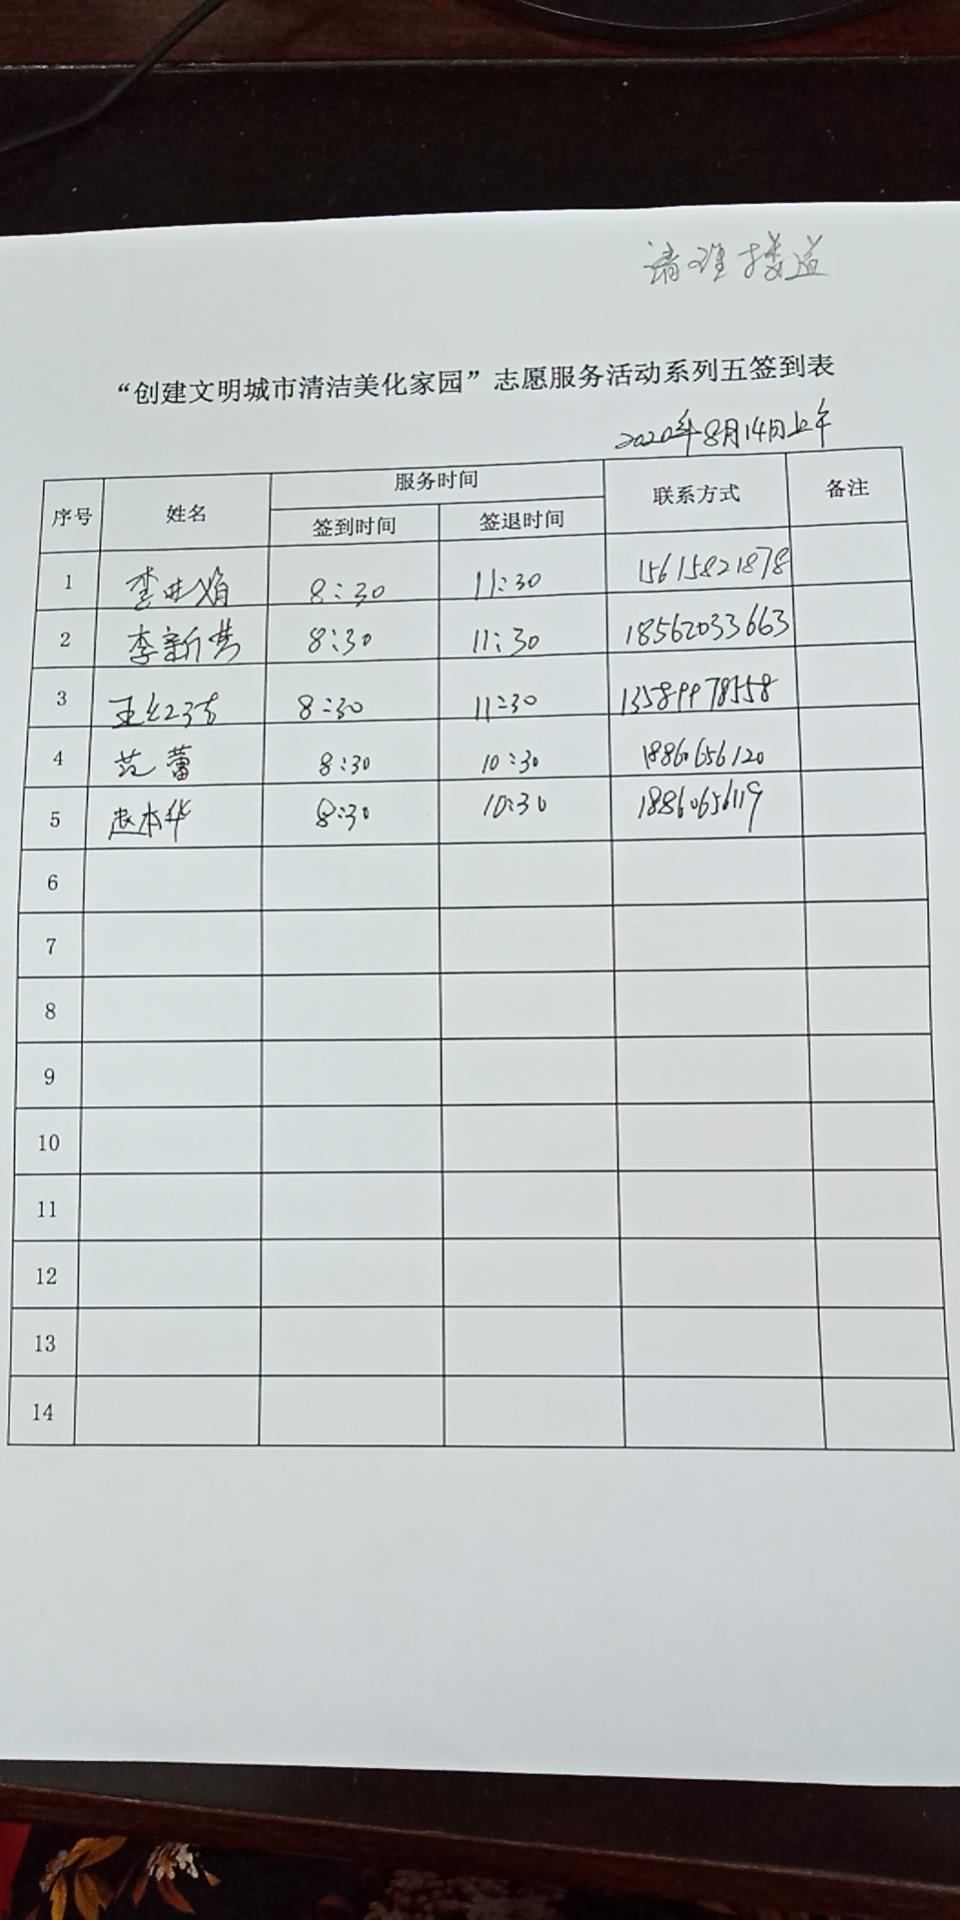 清理楼道
“创建文明城市清洁美化家园”志愿服务活动系列五签到表
2020年8月14日上午
序号 姓名 服务时间 联系方式 备注
签到时间 签退时间
1 8:30 11:30 15615821878
2 李新梦 8:30 11:30 18562033663
3 8:30 11:30 13589978558
4 范蕾 8:30 10:30 18860656120
5 赵本华 8:30 10:30 18860656119
6
7
8
9
10
11
12
13
14